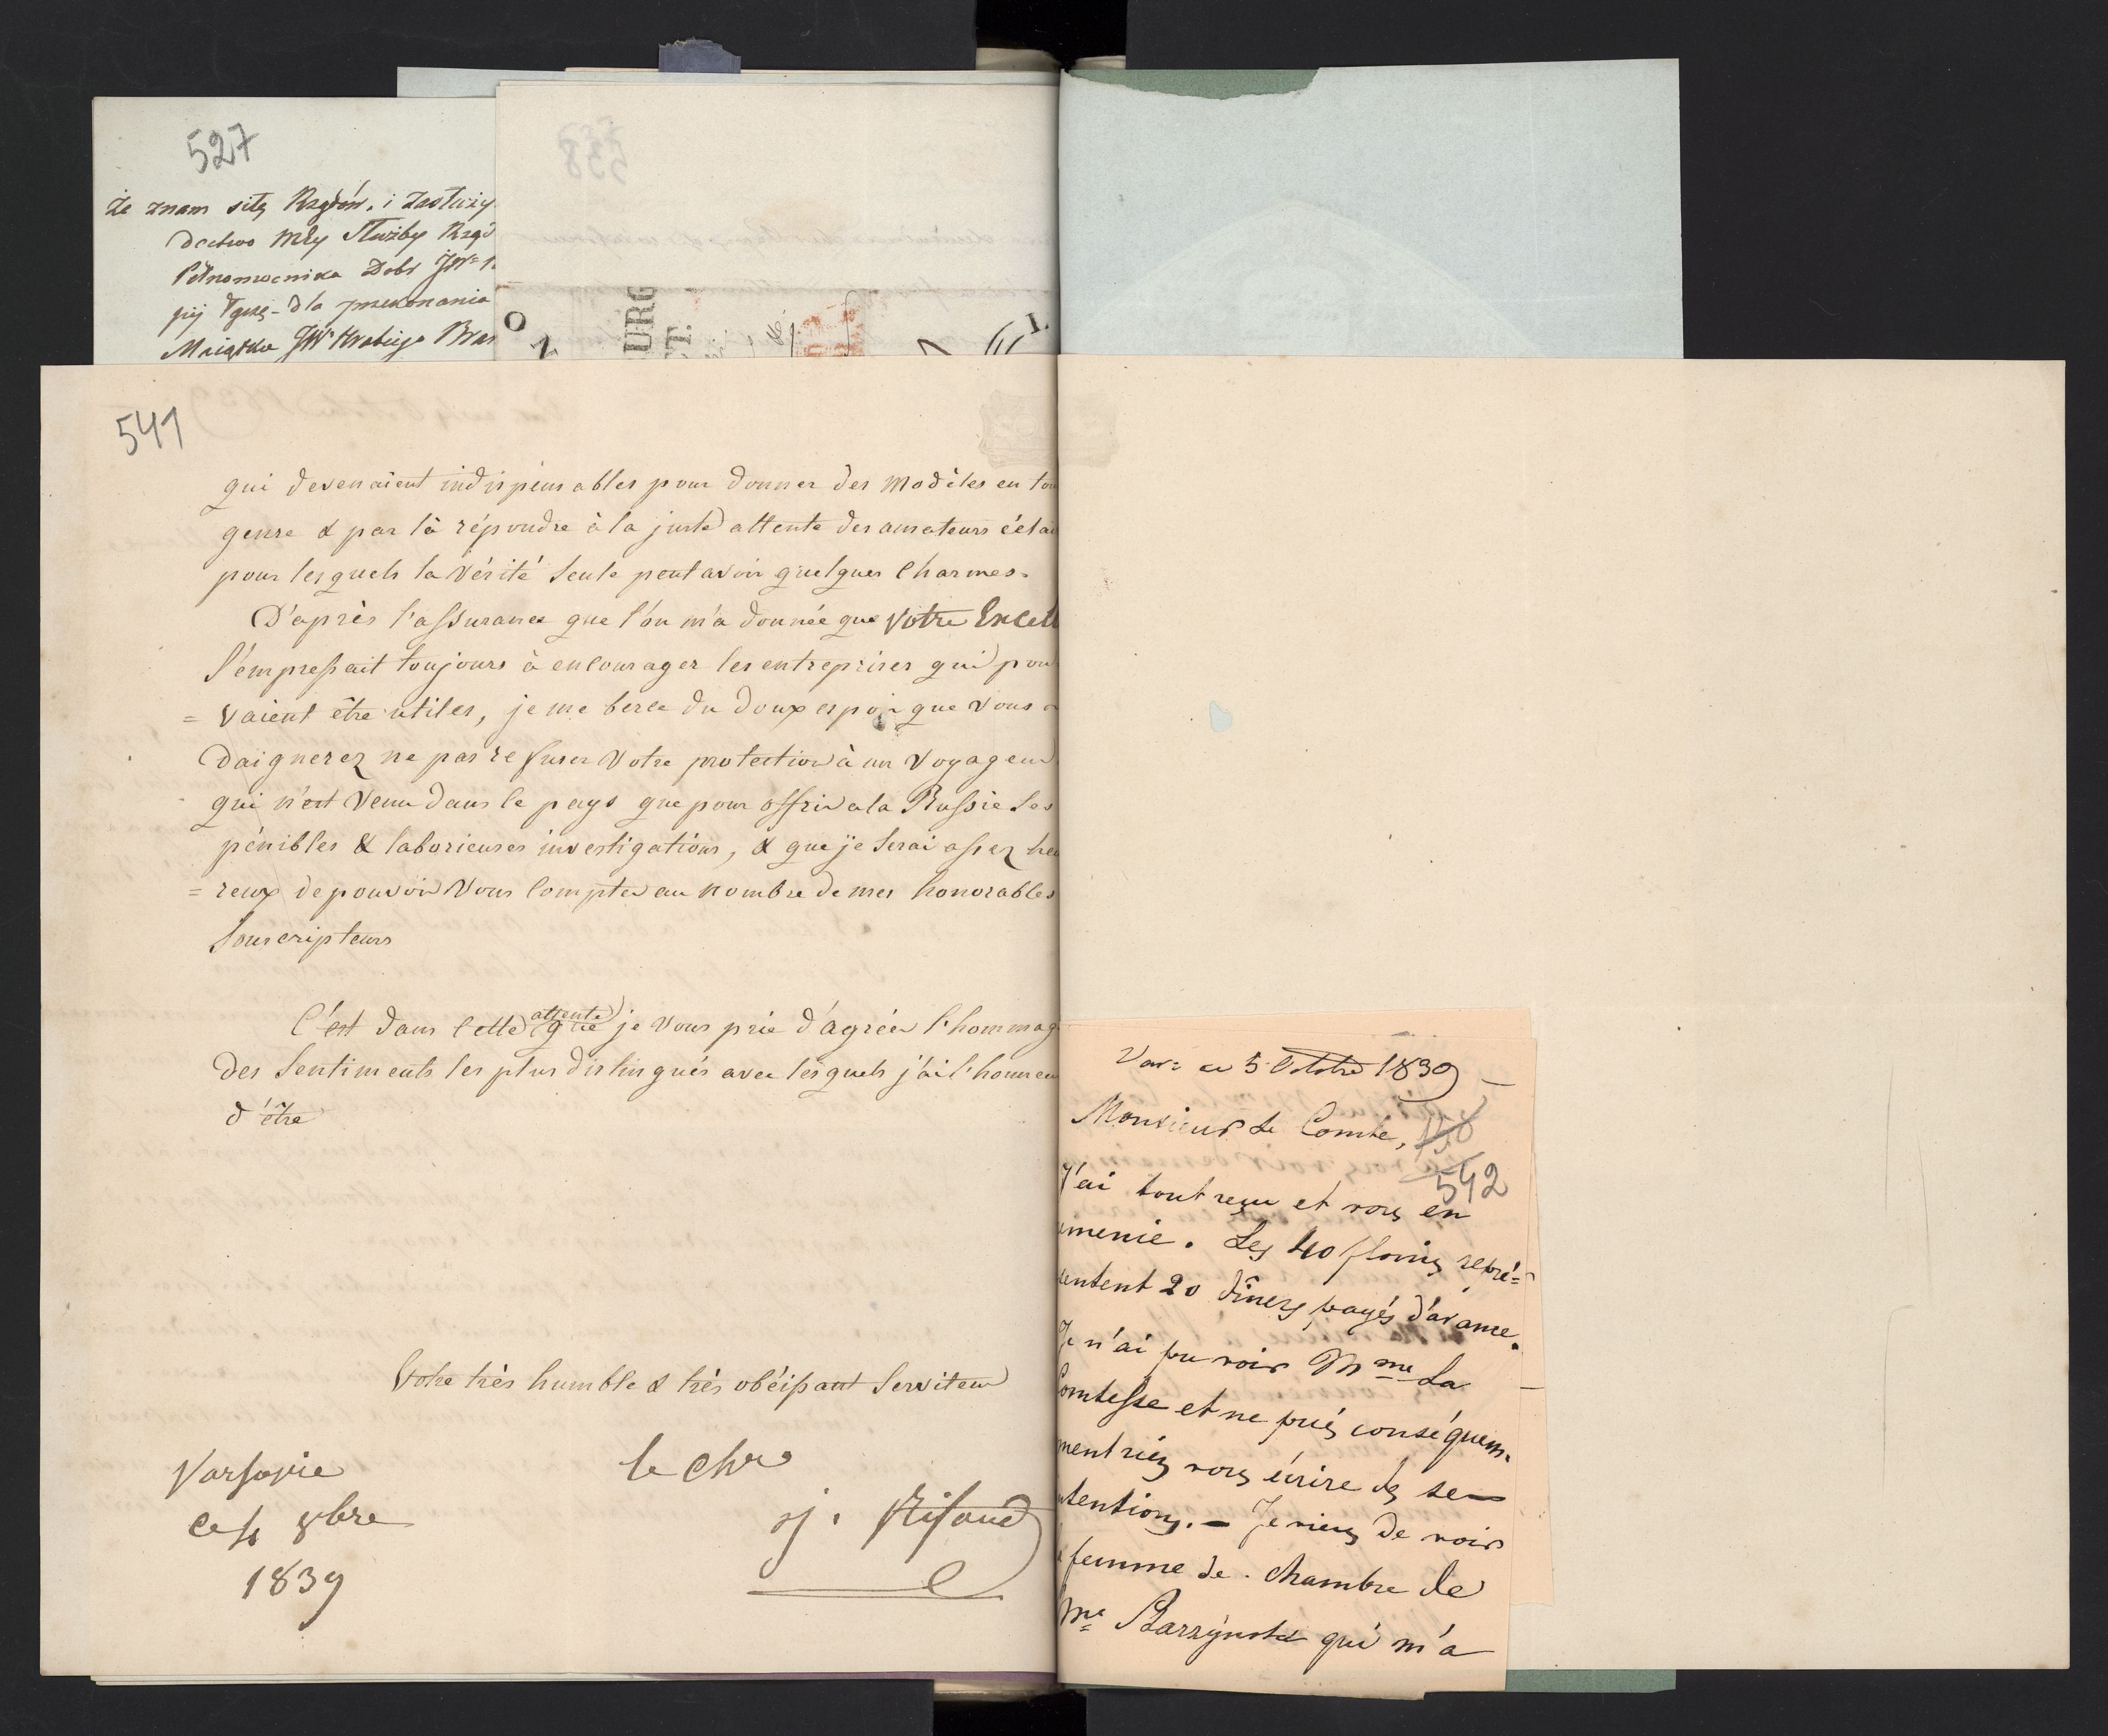 527
że znam siłę Rządów, i zasłuży
dectwo mey Służby Rzą
Pełnomocnika Dobr JW
dla przekonania
Maiątku JW Hrabiego Bra
URG
ST.
541
qui devenaient indispensables pour donner des modèles en tou
genre & par là répondre à la juste attente des amateurs éclai
pour lesquels la Vérité Seule peut avoir quelques Charmes.
D'après l'assurance que l'on m'a donnée que Votre Excell
S'empressait toujours à encourager les entreprises qui pou
= vaient être utiles, je me berce du doux espoir que Vous
Daignerez ne pas refuser Votre protection à un Voyageur
qui n'est Venu dans le pays que pour offrir a la Russie Ses
pénibles & laborieuses investigations, & que je Serai assez heu
= reux de pouvoir Vous Compter au nombre de mes honorables
Souscripteurs
C'est dans cette attente que je Vous prie d'agréer l'hommag
des Sentiments les plus distingués avec lesquels j'ai l'honneu
d'être
Votre très humble & très obéissant Serviteur
Varsovie
ce 4 8bre
1839
le Chr
J. Rifaud
Var: ce 5 Octobre 1839
Monsieur Le Comte,
542
J'ai tout reçu et vous en
emercie. Les 40 florins repré=
sentent 20 dîners payés d'avance.
Je n'ai pu voir Mme La
Comtesse et ne puis conséquem-
ment rien vous écrire de ses
ntentions. – Je viens de voir
femme de chambre de
Me Barzyńska qui m'a